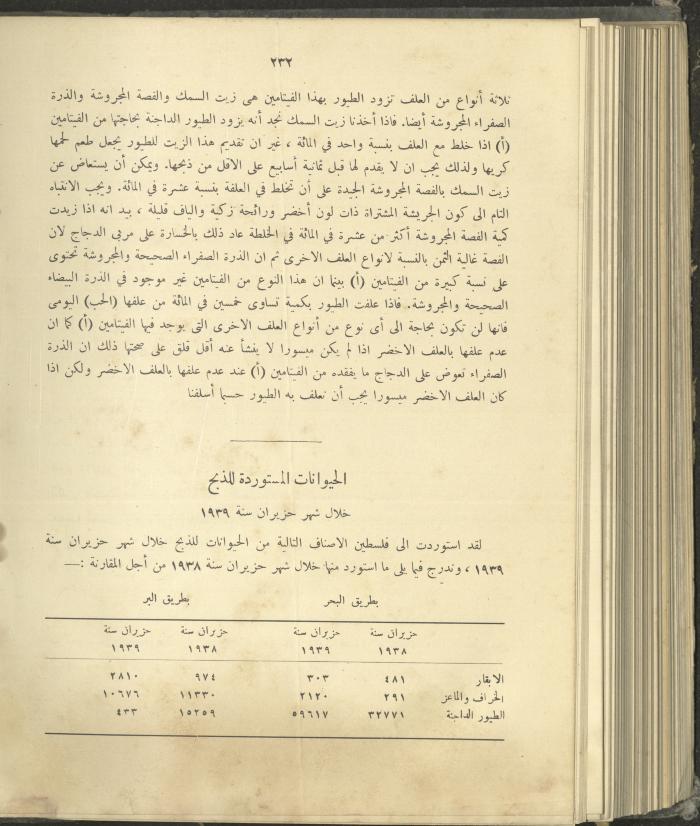 ٢٣٢
ثلاثة أنواع من العلف تزود الطيور بهذا الفيتامين هى زيت السمك والفصة المجروشة والذرة
الصفراء المجروشة أيضا. فاذا أخذنا زيت السمك نجد أنه يزود الطيور الداجنة بحاجتها من الفيتامين
(أ) اذا خلط مع العلف بنسبة واحد في المائة ، غير ان تقديم هذا الزيت للطيور يجعل طعم لحمها
كريها ولذلك يجب ان لا يقدم لها قبل ثمانية أسابيع على الاقل من ذبحها. ويمكن أن يستعاض عن
زيت السمك بالفصة المجروشة الجيدة على أن تخلط في العلفة بنسبة عشرة في المائة. ويجب الانتباه
التام الى كون الجريشة المشتراة ذات لون أخضر ورائحة زكية والياف قليلة ، بيد انه اذا زيدت
كمية الفصة المجروشة أكثر من عشرة في المائة في الخلطة عاد ذلك بالخسارة على مربى الدجاج لان
الفصة غالية الثمن بالنسبة لانواع العلف الاخرى ثم ان الذرة الصفراء الصحيحة والمجروشة تحتوى
على نسبة كبيرة من الفيتامين (أ) بينما ان هذا النوع من الفيتامين غير موجود في الذرة البيضاء
الصحيحة والمجروشة. فاذا علفت الطيور بكمية تساوى خمسين في المائة من علفها (الحب) اليومى
فانها لن تكون بحاجة الى أى نوع من أنواع العلف الاخرى التى يوجد فيها الفيتامين (أ) كما ان
عدم علفها بالعلف الاخضر اذا لم يكن ميسورا لا ينشأ عنه أقل قلق على صحتها ذلك ان الذرة
الصفراء تعوض على الدجاج ما يفقده من الفيتامين (أ) عند عدم علفها بالعلف الاخضر ولكن اذا
كان العلف الاخضر ميسورا يجب أن تعلف به الطيور حسبما أسلفنا
الحيوانات المستوردة للذبح
خلال شهر حزيران سنة ١٩٣٩
لقد استوردت الى فلسطين الاصناف التالية من الحيوانات للذبح خلال شهر حزيران سنة
١٩٣٩ ، وندرج فيما يلى ما استورد منها خلال شهر حزيران سنة ١٩٣٨ من أجل المقارنة :—
بطريق البحر بطريق البر
حزيران سنة حزيران سنة حزيران سنة حزيران سنة
١٩٣٨ ١٩٣٩ ١٩٣٨ ١٩٣٩
الابقار ٤٨١ ٣٠٣ ٩٧٤ ٢٨١٠
الخراف والماعز ٢٩١ ٢١٢٠ ١١٣٣٠ ١٠٦٧٦
الطيور الداجنة ٣٢٧٧١ ٥٩٦١٧ ١٥٢٥٩ ٤٣٣